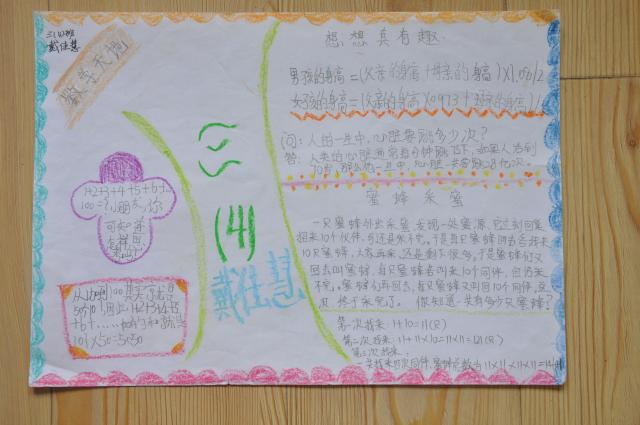 三(4)班
戴佳慧
数学天地
想想真有趣
男孩的身高=(父亲的身高+母亲的身高)×1.08/2
女孩的身高=(父亲的身高×0.923+母亲的身高)/2
问:人的一生中,心脏要跳多少次?
答:人类的心脏通常每分钟跳
如果人活到
70岁,那么他一生中,心脏一共要跳28亿次。
1+2+3+4+5+6+…
100=?小朋友,你
可知道
怎样思
三(4)
戴佳慧
蜜蜂采蜜
一只蜜蜂外出采蜜,发现一处蜜源,它立刻回巢
招来10个伙伴,可还是采不完。于是每只蜜蜂回去各找来
10只蜜蜂,大家再采,还是剩下很多。于是蜜蜂们又
回去叫蜜蜂,每只蜜蜂各叫来10个同伴,但仍采
不完。蜜蜂们再回去,每只蜜蜂又叫回10个同伴,这
次,终于采完了。你知道一共有多少只蜜蜂?
从1加到100其实就是
50个101,因此1+2+3+4+5
+6+……
的和就是
101×50=5050
第一次找来:1+10=11(只)
第二次找来:11+11×10=11×11=121(只)
第三次找来:
一共找来四次同伴,蜜蜂总数为11×11×11×11=14641